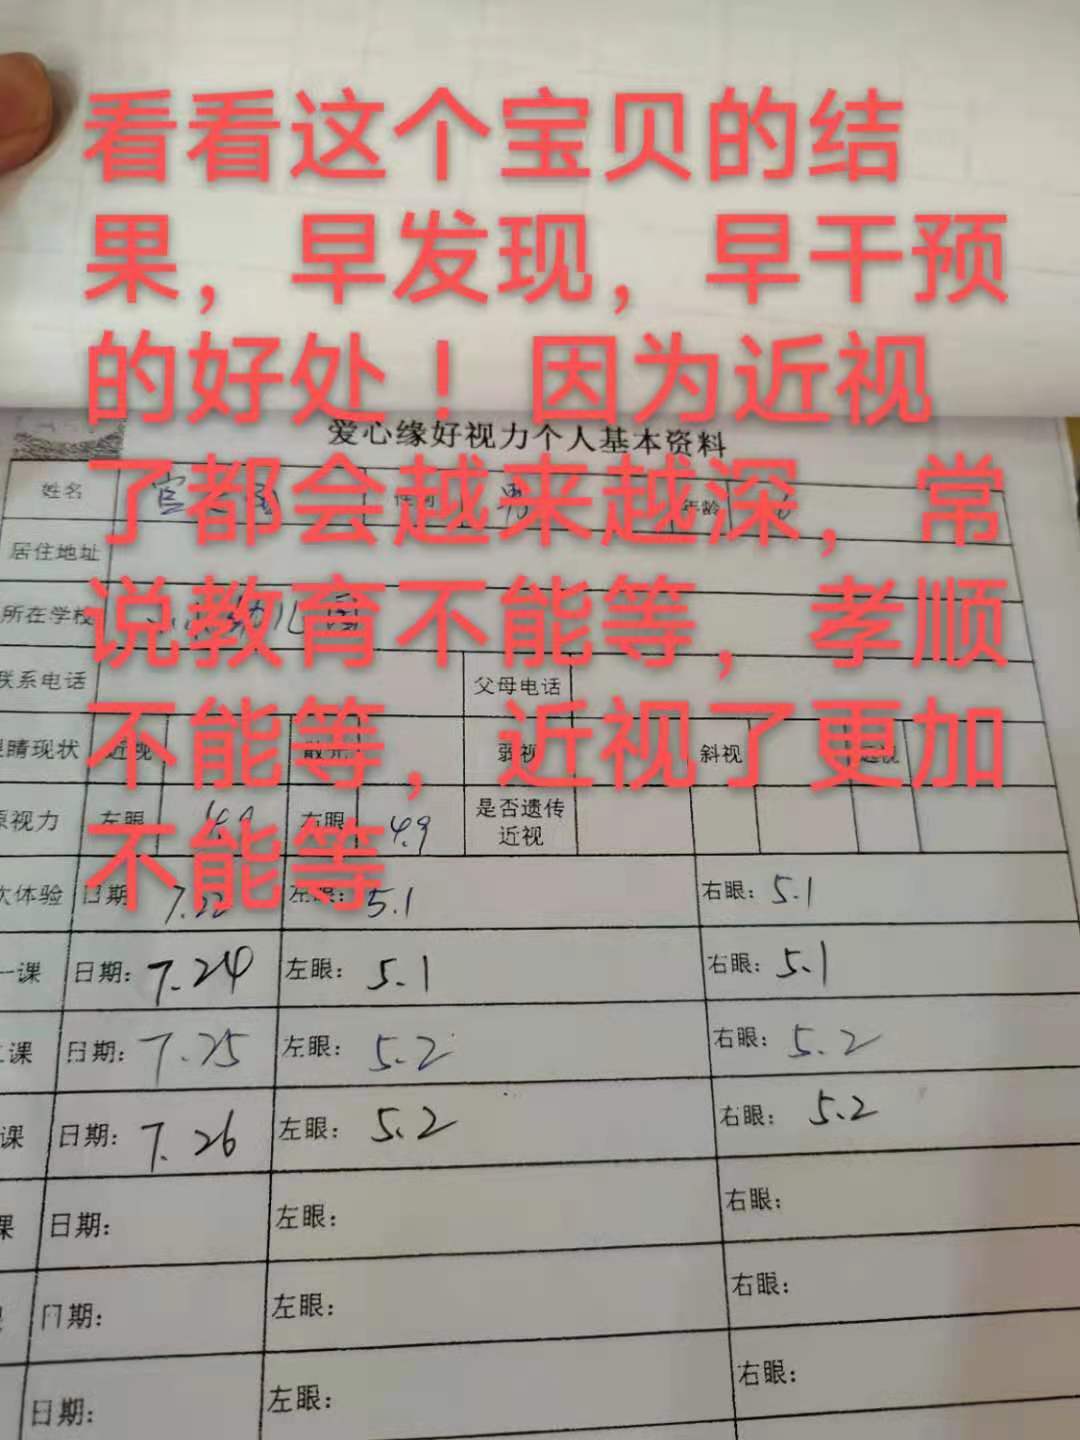 看看这个宝贝的结
果，早发现，早干预
的好处！因为近视
了都会越来越深，常
说教育不能等，孝顺
不能等，近视了更加
不能等
爱心缘好视力个人基本资料
姓名 官 性别 男 年龄
居住地址
所在学校 幼儿园
联系电话 父母电话
眼睛现状 近视 散光 弱视 斜视 远视
原视力 左眼 4.9 右眼 4.9 是否遗传近视
次体验 日期 7.22 左眼： 5.1 右眼： 5.1
一课 日期： 7.24 左眼： 5.1 右眼： 5.1
二课 日期： 7.25 左眼： 5.2 右眼： 5.2
课 日期： 7.26 左眼： 5.2 右眼： 5.2
课 日期： 左眼： 右眼：
日期： 左眼： 右眼：
日期： 左眼： 右眼：